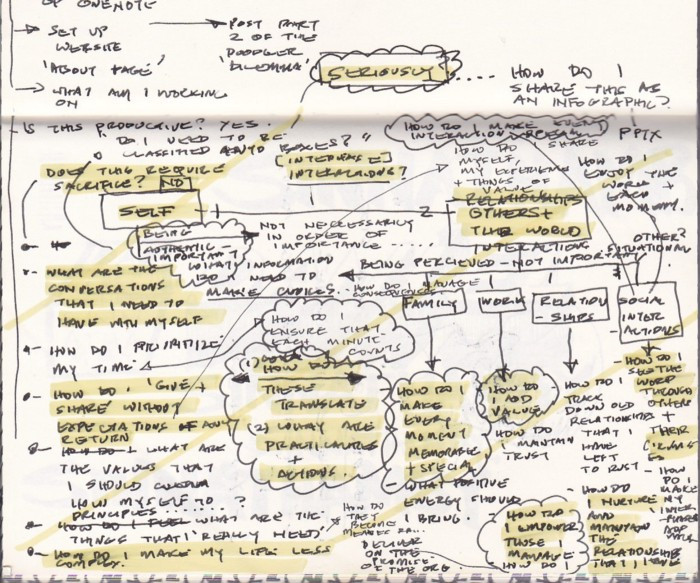 OF ONENOTE
SET UP
WEBSITE
'ABOUT PAGE'
WHAT AM I WORKING
ON
POST PART
2 OF THE
'DOODLER
DILEMMA'
SERIOUSLY ....
HOW DO I
SHARE THIS AS
AN INFOGRAPHIC?
IS THIS PRODUCTIVE? YES.
DO I NEED TO BE
CLASSIFIED INTO BOXES?"
DOES THIS REQUIRE
SACRIFICE? NO
[INTERNALISE]
INTERACTIONS?
HOW DO I MAKE EVERY
INTERACTION
HOW DO I SHARE
MYSELF,
MY EXPERIENCE
+ THINGS OF
VALUE
PPTX
HOW DO I
ENJOY THE
WORK +
EACH
MOMENT.
SELF
2
RELATIONSHIPS
OTHERS +
THE WORLD
INTERACTIONS
OTHER?
SITUATIONAL
BEING
AUTHENTIC -
IMPORTANT
NOT NECESSARILY
IN ORDER OF
IMPORTANCE .....
WHAT INFORMATION
DO I NEED TO
MAKE CHOICES.
BEING PERCIEVED - NOT IMPORTANT
HOW DO I MANAGE
CONSEQUENCES
WHAT ARE THE
CONVERSATIONS
THAT I NEED TO
HAVE WITH MYSELF
FAMILY
WORK
RELATION
- SHIPS
SOCIAL
INTER
- ACTIONS
HOW DO I
ENSURE THAT
EACH MINUTE
COUNTS
HOW DO I PRIORITIZE
MY TIME
HOW DO I 'GIVE +
SHARE' WITHOUT
EXPECTATIONS OF ANY
RETURN
(1) HOW DO
THESE
TRANSLATE
(2) WHAT ARE
PRACTICALITIES
+
ACTIONS.
HOW DO I
MAKE
EVERY
MOMENT
MEMORABLE
+ SPECIAL
WHAT POSITIVE
ENERGY SHOULD
I BRING.
HOW DO
I ADD
VALUE
HOW DO I
MAINTAIN
TRUST
HOW DO I
TRACK
DOWN OLD
RELATIONSHIPS
THAT I
HAVE
LEFT
TO RUST
HOW DO I
SEE THE
WORLD
THROUGH
OTHERS
+
THEIR
HOW DO I WHAT ARE
THE VALUES THAT
I SHOULD
HOW MYSELF TO ..... ?
PRINCIPLES .......
HOW DO I FEEL WHAT ARE THE
THINGS THAT I REALLY 'NEED'
HOW DO I MAKE MY LIFE LESS
COMPLEX.
HOW DO
THEY
BECOME
DELIVER
ON THE
PROMISE
OF THE ORG.
HOW DO
I EMPOWER
THOSE I
MANAGE
HOW DO I
HOW DO
I NURTURE
AND
MAINTAIN
THE
RELATIONSHIP
THAT I
HOW
DO I
MAKE
MY
INTER